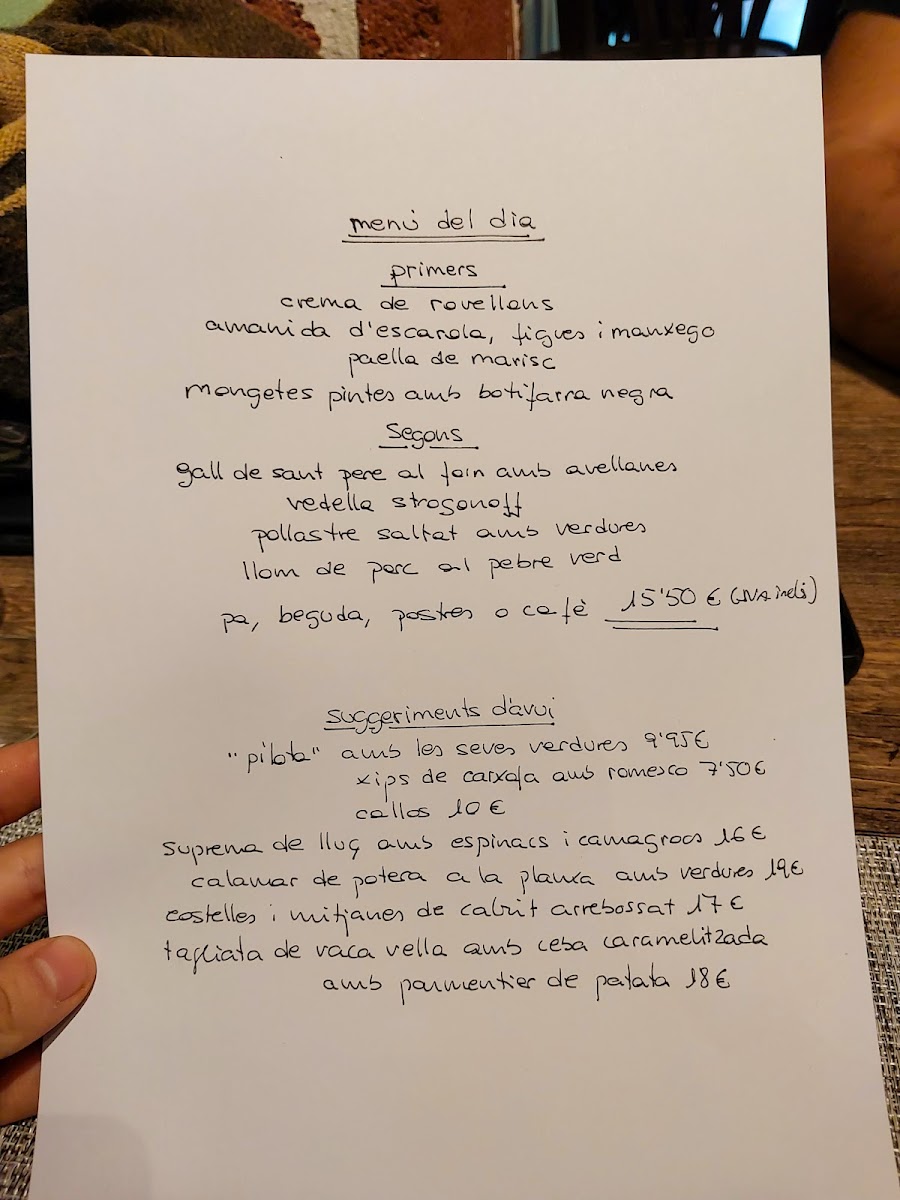 menú del dia
primers
crema de rovellons
amanida d'escarola, figues i manxego
paella de marisc
mongetes pintes amb botifarra negra
Segons
gall de sant pere al forn amb avellanes
vedella strogonoff
pollastre saltat amb verdures
llom de porc al pebre verd
pa, beguda, postres o cafè 15'50 € (IVA incl)
suggeriments d'avui
"pilota" amb les seves verdures 9'95€
xips de carxofa amb romesco 7'50€
callos 10€
suprema de lluç amb espinacs i camagrocs 16€
calamar de potera a la planxa amb verdures 19€
costelles i mitjanes de cabrit arrebossat 17€
tagliata de vaca vella amb ceba caramelitzada
amb parmentier de patata 18€